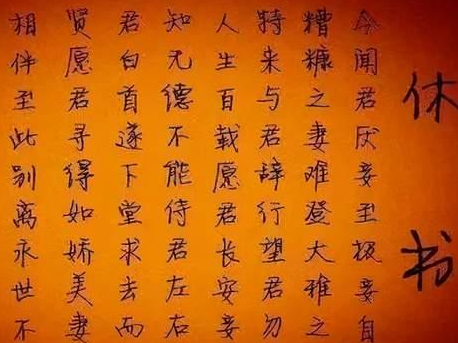 休书
今闻君厌妾至极妾自
糟糠之妻难登大雅之
特来与君辞行望君勿
人生百载愿君长安妾
知无德不能侍君左右
君白首遂下堂求去而
贤愿君寻得如娇美妻
相伴至此别离永世不